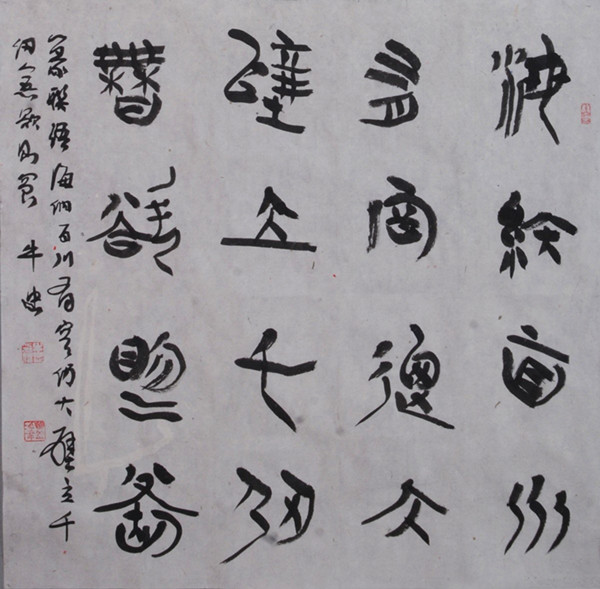 海納百川
有容乃大
壁立千仞
無欲則剛
篆聯語海納百川有容乃大壁立千
仞無欲則剛 牛